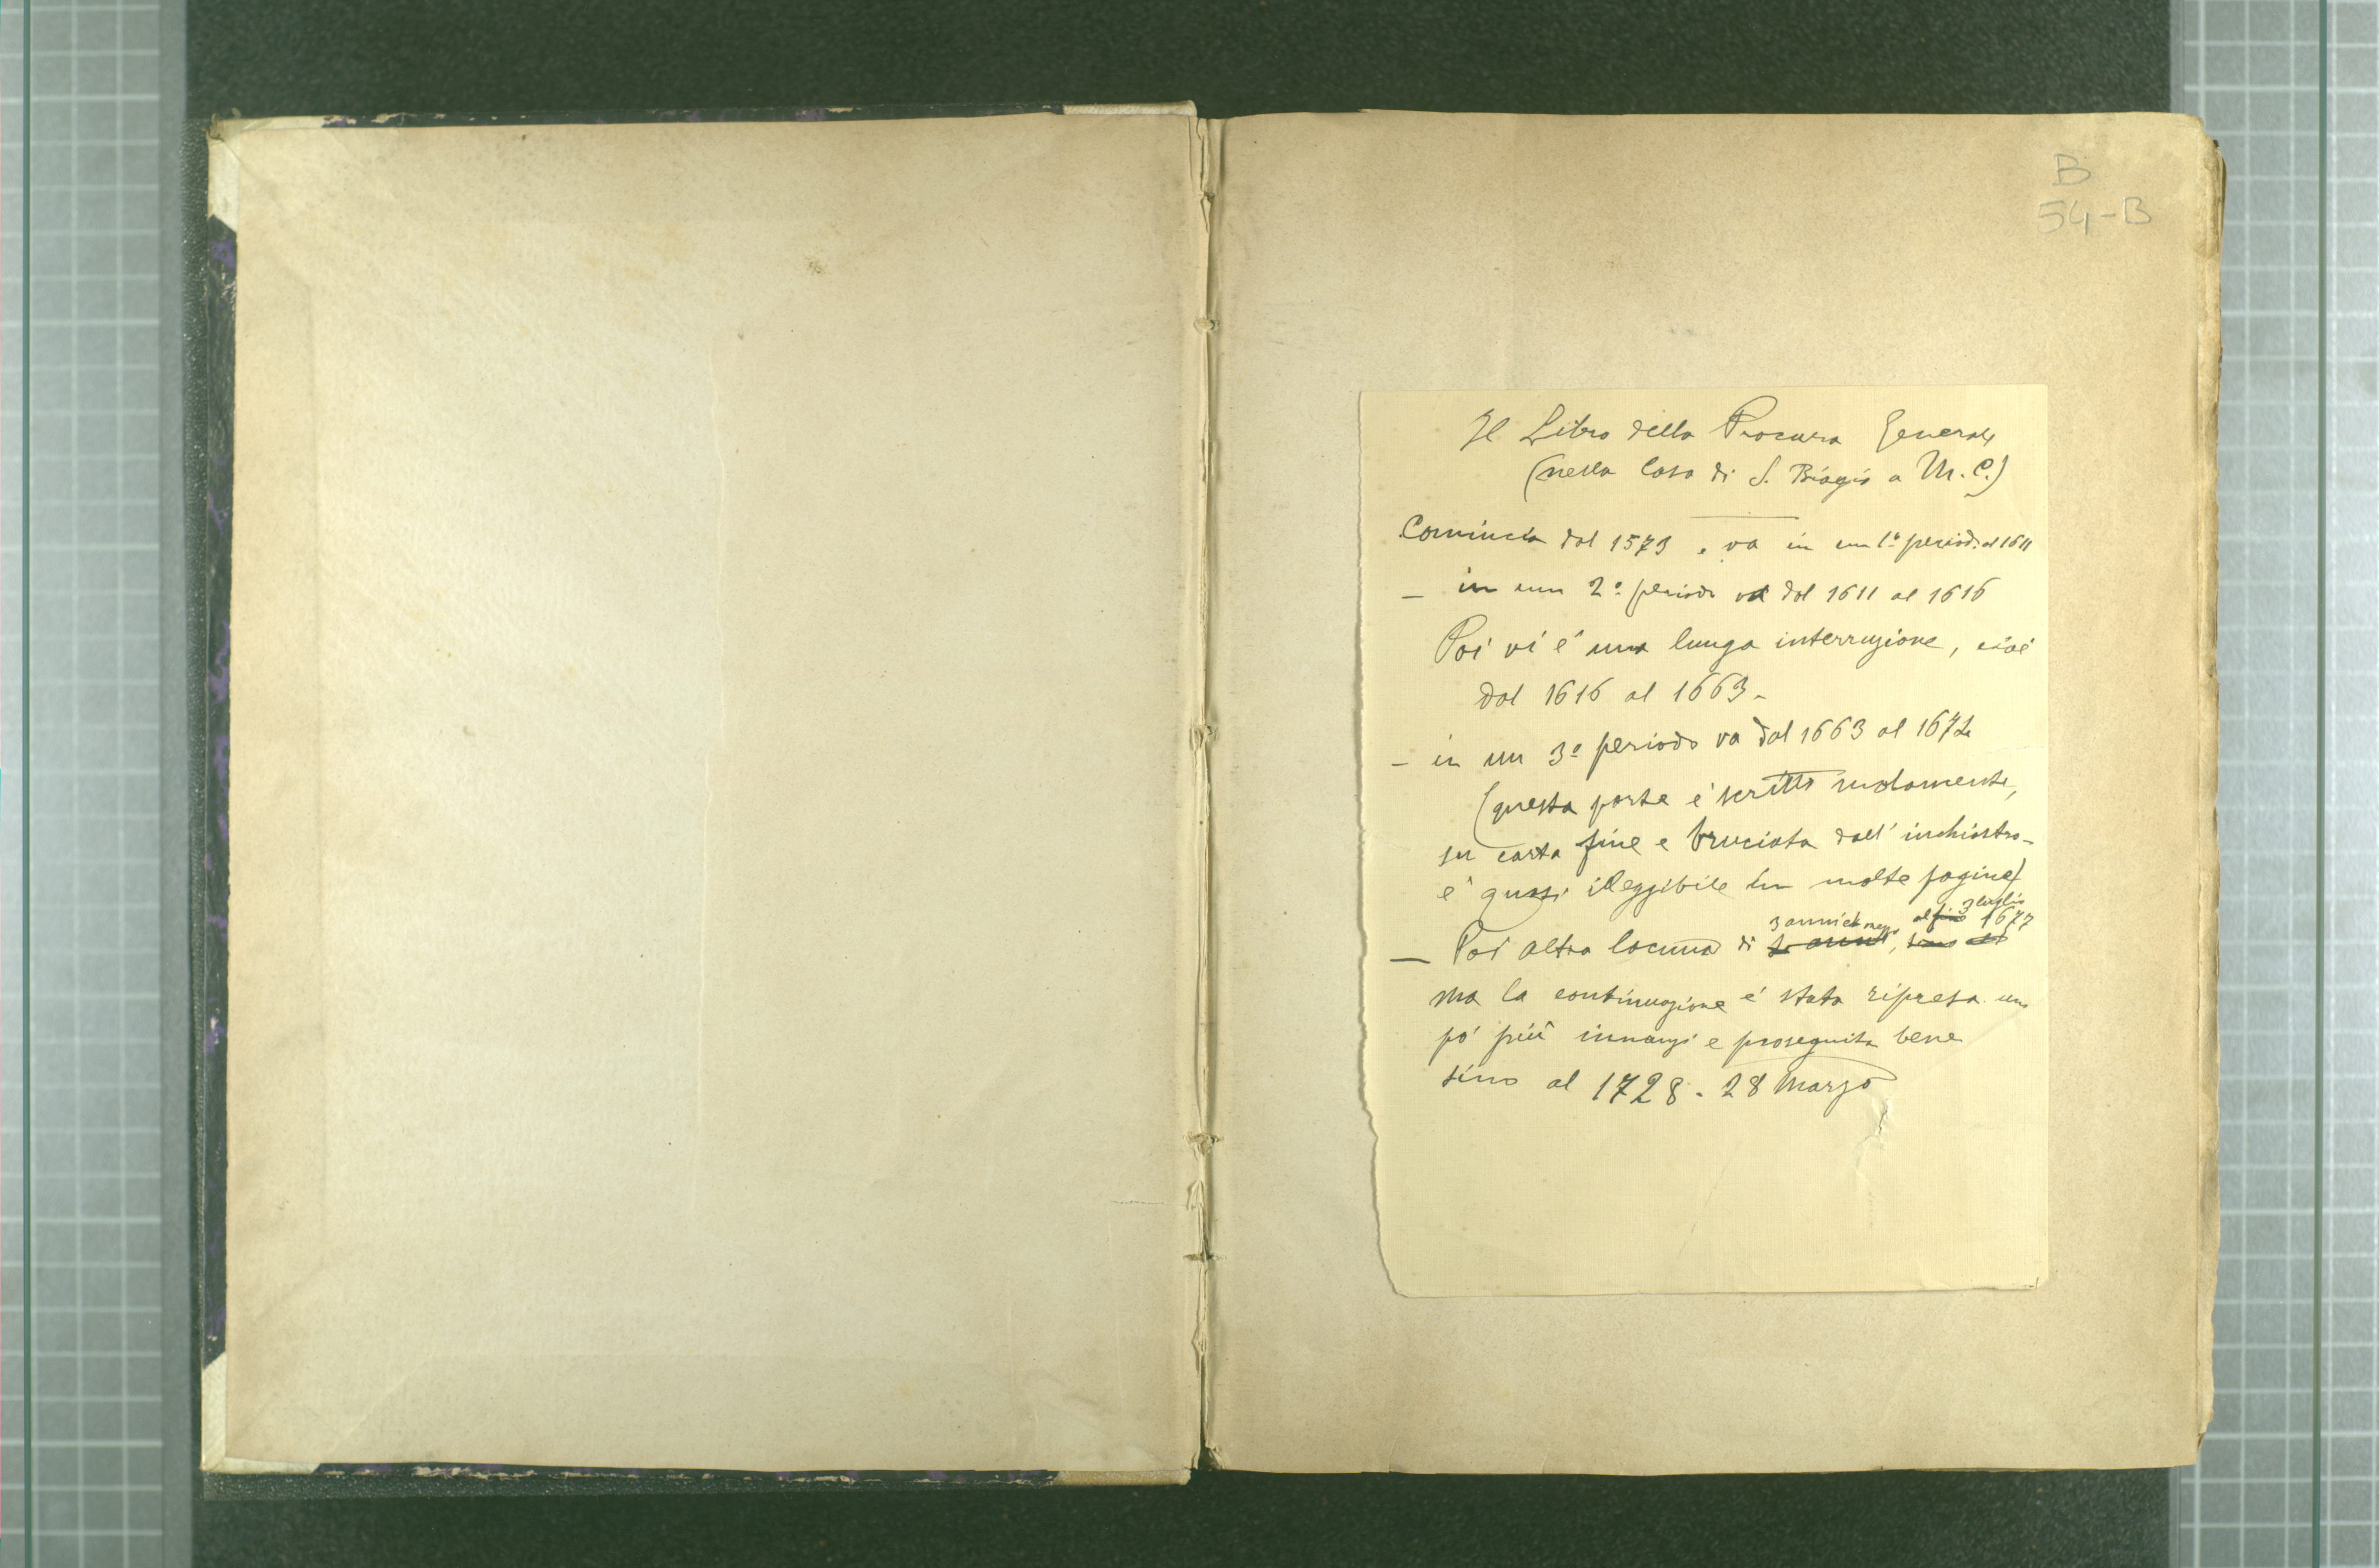 B
54-B
Il Libro della Procura Generale
(nella Casa di S. Biagio a M. C.)
Comincia dal 1573 e va in un 1º periodo al 1611
— in un 2º periodo va dal 1611 al 1616
Poi vi è una lunga interruzione, cioè
dal 1616 al 1663-
- in un 3º periodo va dal 1663 al 1672
(questa parte è scritta malamente,
su carta fine e bruciata dall' inchiostro-
è quasi illeggibile in molte pagine)
3 anni e mezzo al 3 luglio 1677
— Poi altra lacuna di
ma la continuazione è stata ripresa un
pó più innanzi e proseguita bene
sino al 1728 - 28 Marzo